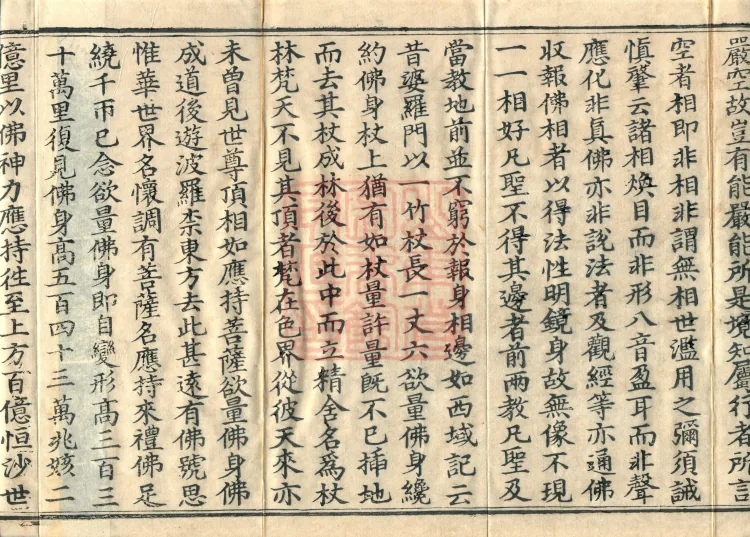 嚴空故豈有能嚴能所是境知屬行者所言
空者相即非相非謂無相世濫用之彌須誠
慎肇云諸相煥目而非形八音盈耳而非聲
應化非真佛亦非說法者及觀經等亦通佛
収報佛相者以得法性明鏡身故無像不現
一一相好凡聖不得其邊者前兩教凡聖及
當教地前並不窮於報身相邊如西域記云
昔婆羅門以一竹杖長一丈六欲量佛身纔
約佛身杖上猶有如杖量許量旣不已揷地
而去其杖成林後於此中而立精舍名爲杖
林梵天不見其頂者梵在色界從彼天來亦
未曽見世尊頂相如應持菩薩欲量佛身佛
成道後遊波羅柰東方去此甚遠有佛號思
惟華世界名懷調有菩薩名應持來禮佛足
繞千帀已念欲量佛身即自變形高三百三
十萬里復見佛身高五百四十三萬兆姟二
億里以佛神力應持徃至上方百億恒沙世